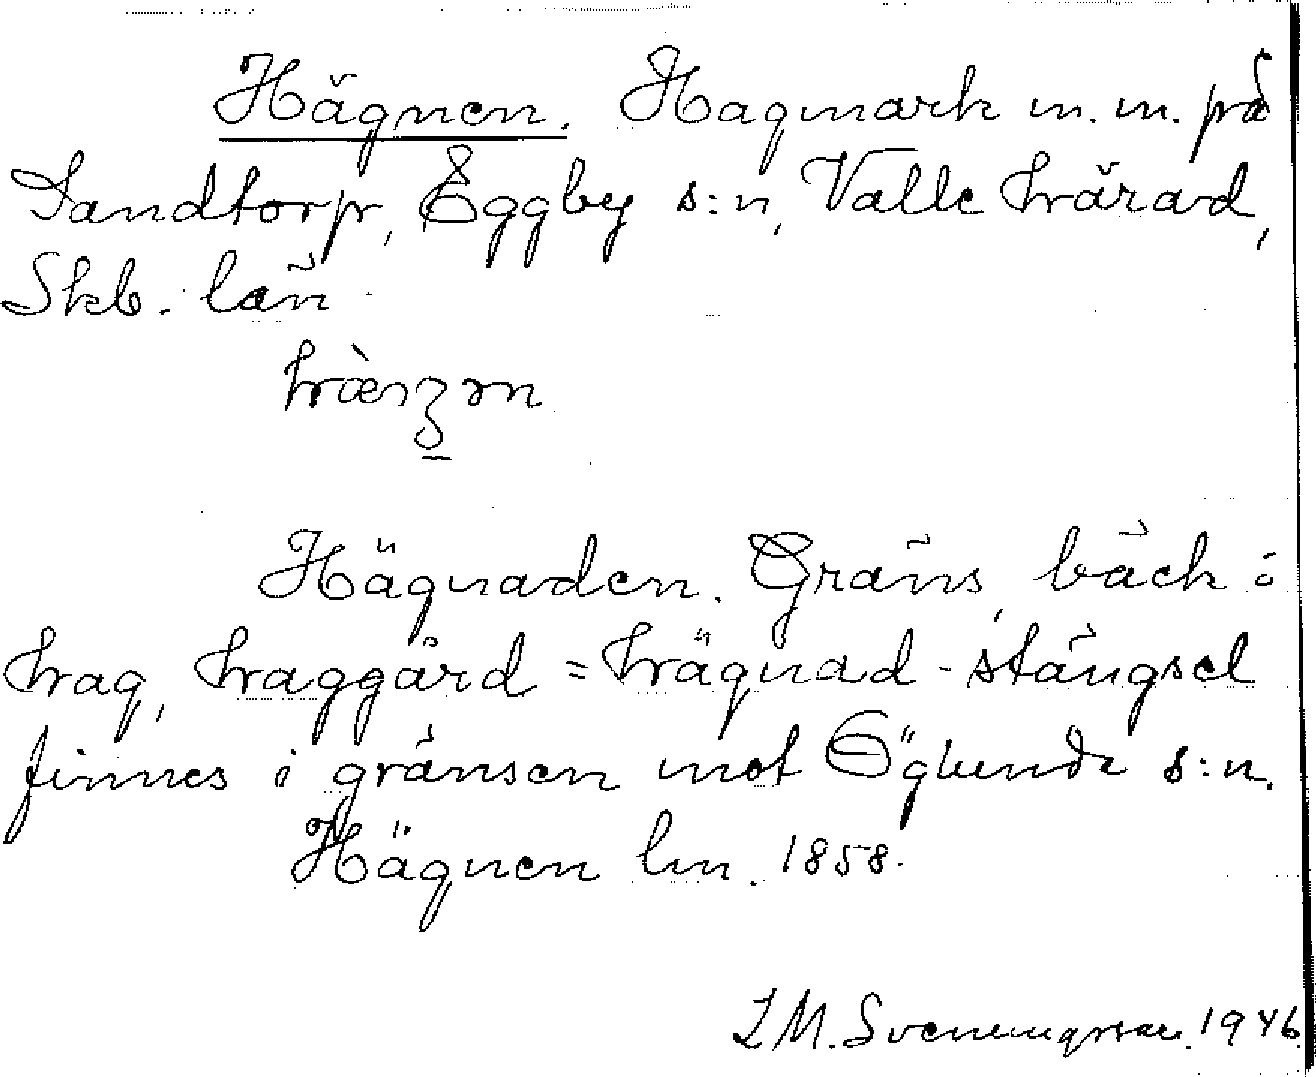 Hägnen. Hagmark m. m. på
Sandtorp, Eggby s:n, Valle härad,
Skb. län
Hägnaden. Gräns, bäck i
hag, haggård = hägnad - stängsel
finnes i gränsen mot Öglunda s:n.
Hägnen lm. 1858.
I M. Svenungsson. 1946